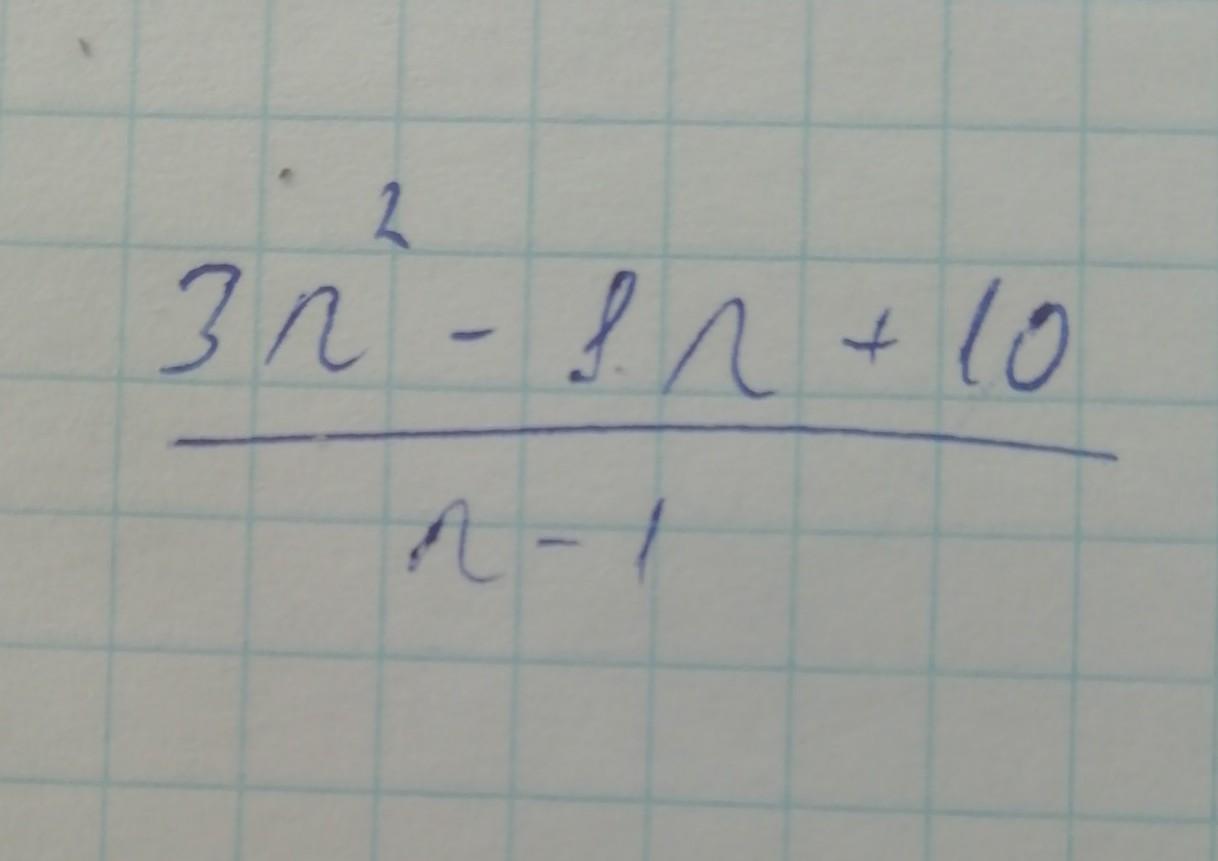 3n² - 8n + 10
n - 1